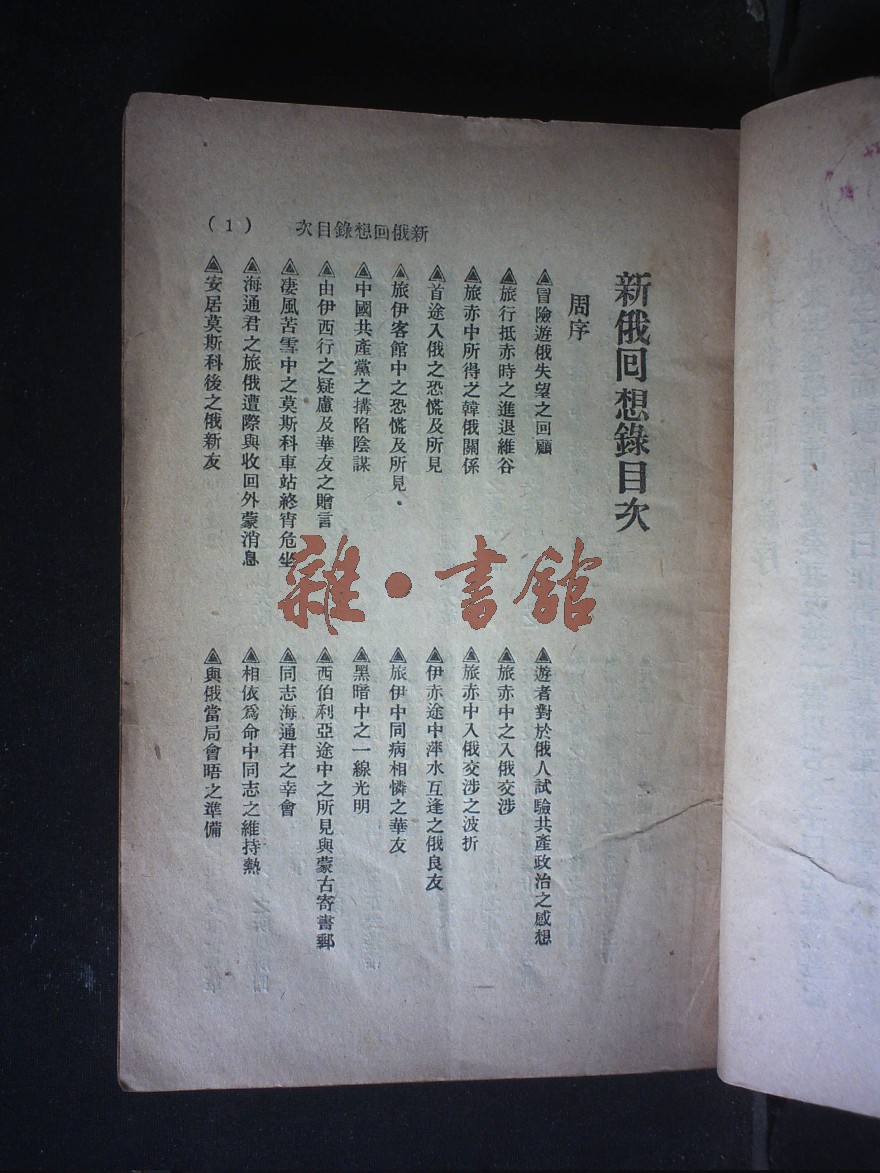 新俄回想錄目次
(1)
新俄回想錄目次
周序
▲冒險遊俄失望之回顧
▲遊者對於俄人試驗共產政治之感想
▲旅行抵赤時之進退維谷
▲旅赤中之入俄交涉
▲旅赤中所得之韓俄關係
▲旅赤中入俄交涉之波折
▲首途入俄之恐慌及所見
▲伊赤途中萍水互逢之俄良友
▲旅伊客館中之恐慌及所見
▲旅伊中同病相憐之華友
▲中國共產黨之搆陷陰謀
▲黑暗中之一線光明
▲由伊西行之疑慮及華友之贈言
▲西伯利亞途中之所見與蒙古寄書郵
▲凄風苦雪中之莫斯科車站終宵危坐
▲同志海通君之幸會
▲海通君之旅俄遭際與收回外蒙消息
▲相依為命中同志之維持熱
▲安居莫斯科後之俄新友
▲與俄當局會晤之準備
雜·書館